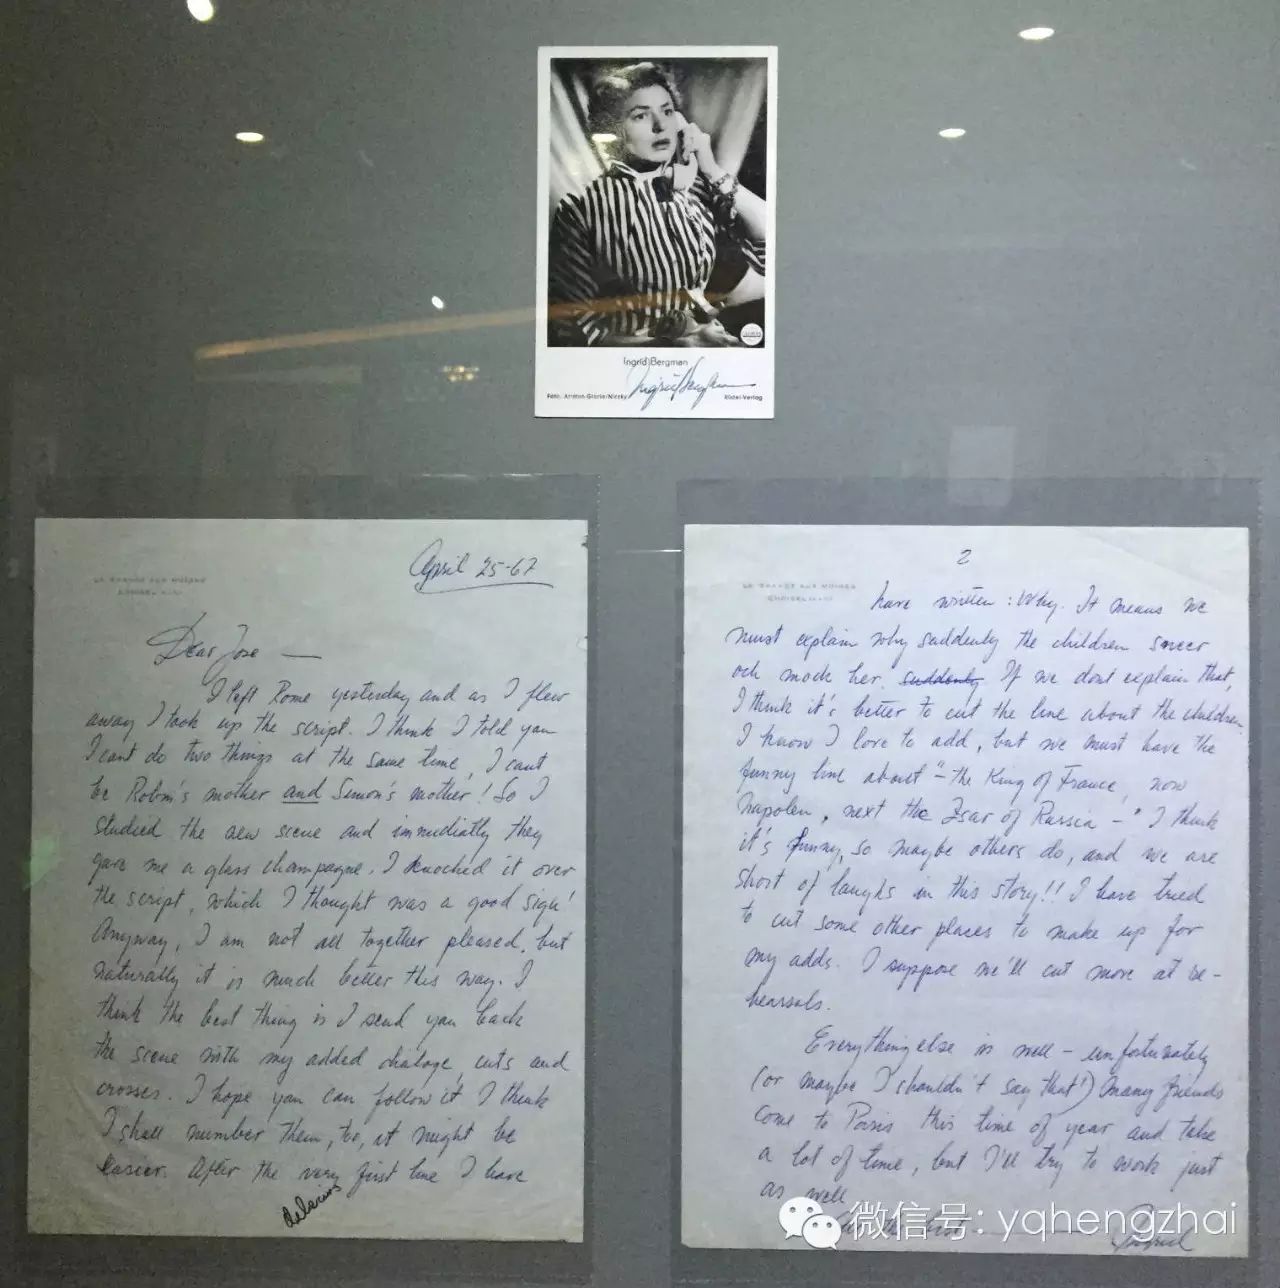 Ingrid Bergman
Ingrid Bergman
Foto: Artisten-Gloria/Niczky
Rüdel-Verlag
LA GRANGE AUX MOINES
CHOISEL
April 25-67
Dear Jose —
I left Rome yesterday and as I flew
away I took up the script. I think I told you
I cant do two things at the same time, I cant
be Robin's mother and Simon's mother! So I
studied the new scene and immediatly they
gave me a glass champagne. I knocked it over
the script, which I thought was a good sign!
Anyway, I am not all together pleased, but
naturally it is much better this way. I
think the best thing is I send you back
the scene with my added dialoge, cuts and
crosses. I hope you can follow it I think
I shall number them, too, it might be
easier. After the very first line I have
2
LA GRANGE AUX MOINES
CHOISEL
have written: Why. It means we
must explain why suddenly the children sneer
och mock her. suddenly If we dont explain that,
I think it's better to cut the line about the children
I know I love to add, but we must have the
funny line about "- the King of France, now
Napolen, next the Zsar of Russia -" I think
it's funny, so maybe others do, and we are
short of laughs in this story!! I have tried
to cut some other places to make up for
my adds. I suppose we'll cut more at re-
hearsals.
Everything else is well - unfortunately
(or maybe I shouldn't say that!) many friends
come to Paris this time of year and take
a lot of time, but I'll try to work just
as well
Ingrid
微信号: yqhengzhai